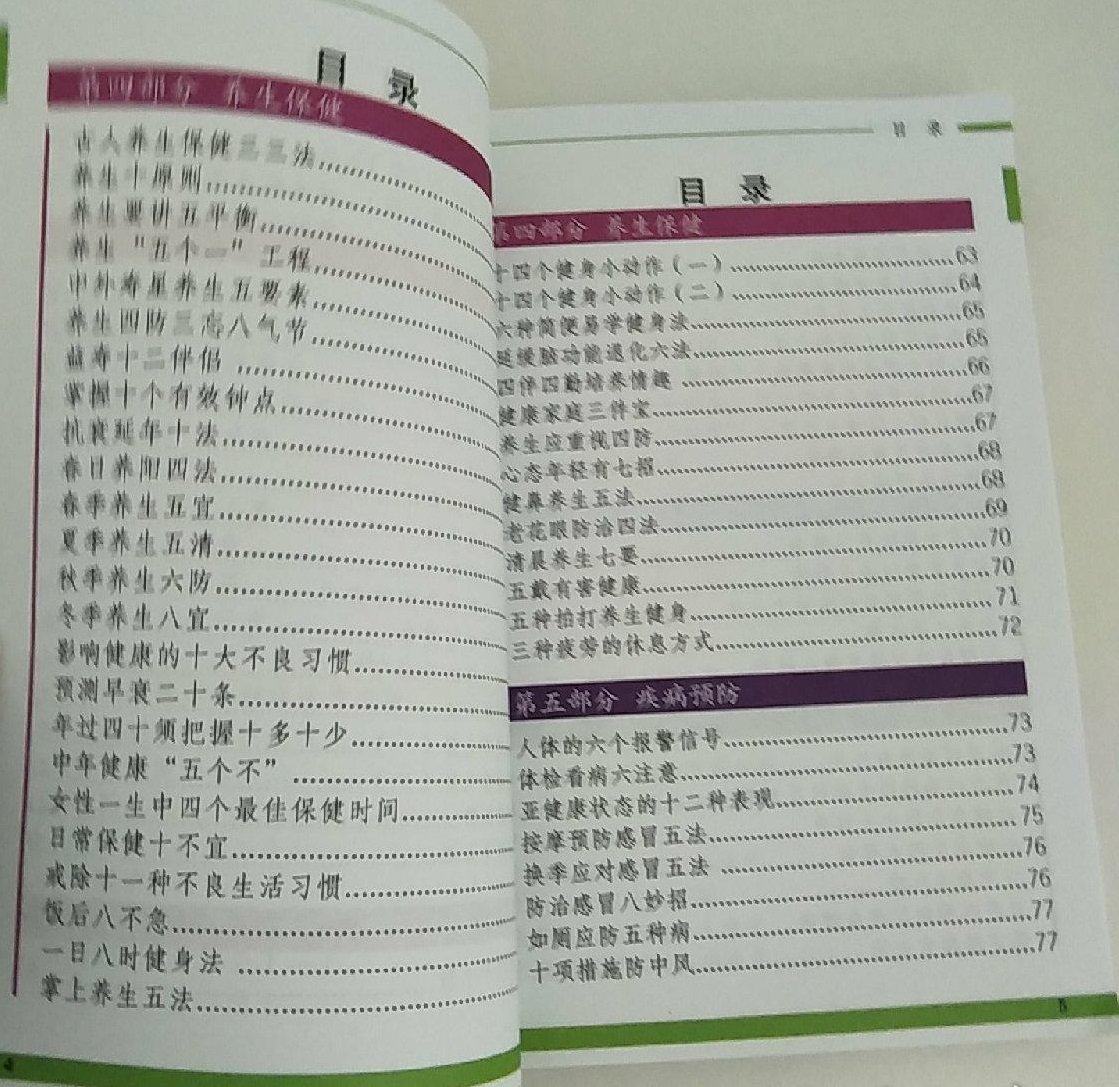 目 录
第四部分 养生保健
古人养生保健三三法
养生十原则
养生要讲五平衡
养生“五个一”工程
中外寿星养生五要素
养生四防三忘八气节
益寿十二伴侣
掌握十个有效钟点
抗衰延年十法
春日养阳四法
春季养生五宜
夏季养生五清
秋季养生六防
冬季养生八宜
影响健康的十大不良习惯
预测早衰二十条
年过四十须把握十多十少
中年健康“五个不”
女性一生中四个最佳保健时间
日常保健十不宜
戒除十一种不良生活习惯
饭后八不急
一日八时健身法
掌上养生五法
4
目 录
目 录
第四部分 养生保健
十四个健身小动作(一)63
十四个健身小动作(二)64
六种简便易学健身法65
延缓脑功能退化六法65
四伴四勤培养情趣66
健康家庭三件宝67
养生应重视四防67
心态年轻有七招68
健鼻养生五法68
老花眼防治四法69
清晨养生七要70
五戴有害健康70
五种拍打养生健身71
三种疲劳的休息方式72
第五部分 疾病预防
人体的六个报警信号73
体检看病六注意73
亚健康状态的十二种表现74
按摩预防感冒五法75
换季应对感冒五法76
防治感冒八妙招76
如厕应防五种病77
十项措施防中风77